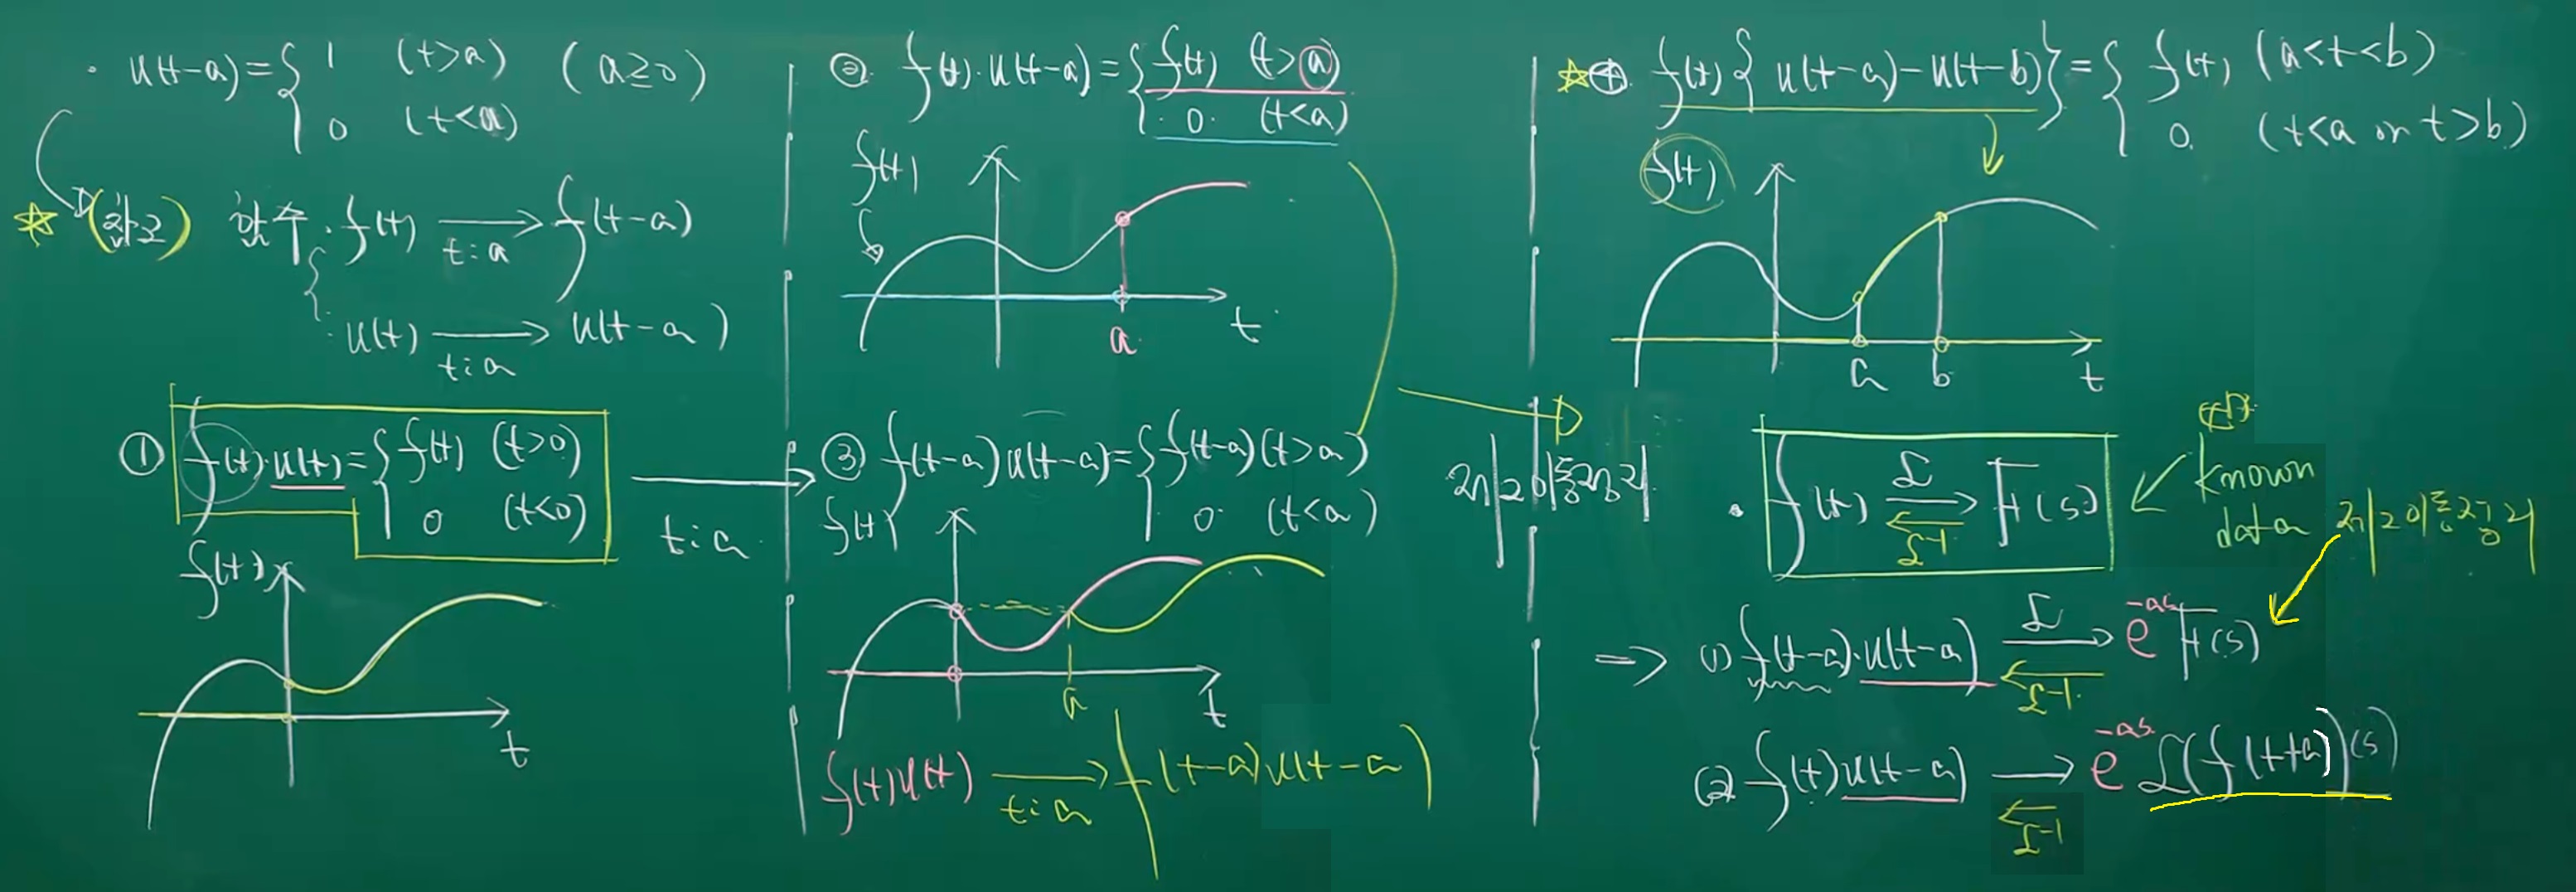 · u(t-a) = { 1 (t>a) (a≥0)
0 (t<a)
☆ (참고) 함수 · f(t) → f(t-a)
t:a
u(t) → u(t-a)
t:a
① f(t)·u(t) = { f(t) (t>0)
0 (t<0)
t:a
f(t)
t
② f(t)·u(t-a) = { f(t) (t>a)
0 (t<a)
f(t)
a
t
③ f(t-a)u(t-a) = { f(t-a) (t>a)
0 (t<a)
f(t)
a
t
f(t)u(t) → f(t-a)u(t-a)
t:a
☆④ f(t){u(t-a)-u(t-b)} = { f(t) (a<t<b)
0 (t<a or t>b)
f(t)
a b t
제2이동정리
· f(t) ⇄ F(s)
ℒ
ℒ⁻¹
known
data
제2이동정리
⇒ (1) f(t-a)·u(t-a) ⇄ e^{-as} F(s)
ℒ
ℒ⁻¹
(2) f(t)u(t-a) → e^{-as} ℒ(f(t+a))(s)
ℒ⁻¹